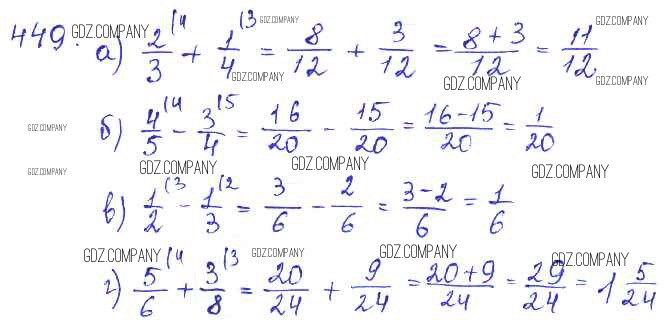 449. а) 2/3 (4 + 1/4 (3 = 8/12 + 3/12 = (8 + 3)/12 = 11/12
б) 4/5 (4 - 3/4 (5 = 16/20 - 15/20 = (16 - 15)/20 = 1/20
в) 1/2 (3 - 1/3 (2 = 3/6 - 2/6 = (3 - 2)/6 = 1/6
г) 5/6 (4 + 3/8 (3 = 20/24 + 9/24 = (20 + 9)/24 = 29/24 = 1 5/24
GDZ.COMPANY GDZ.COMPANY GDZ.COMPANY
GDZ.COMPANY GDZ.COMPANY GDZ.COMPANY
GDZ.COMPANY GDZ.COMPANY
GDZ.COMPANY GDZ.COMPANY GDZ.COMPANY GDZ.COMPANY
GDZ.COMPANY GDZ.COMPANY GDZ.COMPANY GDZ.COMPANY